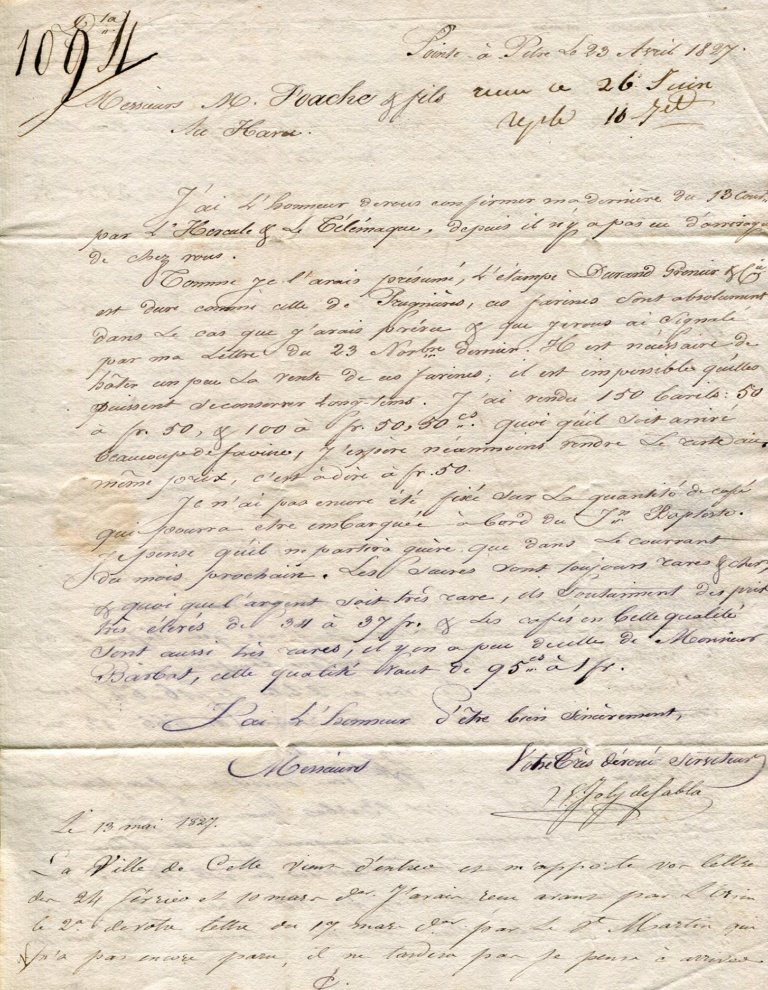 1094
Pointe à Pitre Le 23 Avril 1827.
Messieurs M. Foache & fils
Au Havre.
recue ce 26 Juin
rep le
J'ai L'honneur devous confirmer ma dernière du 13 Cour.
par L'Hercule & Le Télémaque, depuis il n'y a pas eu d'arrivage
de chez vous.
Comme Je l'avais présumé, L'étampe Durand Gronier & Cie
est dure comme celle de Brugnières, ces farines sont absolument
dans Le cas que j'avais prévu & que Jevous ai Signalé
par ma Lettre du 23 Novbre dernier. Il est nécessaire de
hâter un peu La vente de ces farines; il est impossible qu'elles
puissent seconserver Long-tems. J'ai vendu 150 barils: 50
à fr. 50, & 100 à fr. 50,50 cs quoi qu'il soit arrivé
beaucoup de farine, J'espère néanmoins vendre Le reste au
même prix, c'est àdire à fr. 50.
Je n'ai pas encore été fixé sur La quantité de café
qui pourra etre embarquée à bord du Jn Baptiste.
Je pense qu'il ne partira guère que dans Le courrant
du mois prochain. Les Sucres sont toujours rares & chers
& quoi que L'argent soit très rare, ils Soutiennent des prix
très élevés de 34 à 37 fr. & Les cafés en belle qualité
sont aussi très rares, il y en a peu decelle de Monsieur
Barbat, cette qualité vaut de 95 cs à 1 fr.
J'ai L'honneur d'être bien sincèrement,
Messieurs
Votre Très dévoué Serviteur
Joly de Sabla
Le 13 mai 1827.
La Ville de Cette vient d'entrer et m'apporte vos lettres
des 24 février et 10 mars der. J'avais recu avant par
le 2a devotre lettre du 17 mars der par Le St Martin qui
n'a pas encore paru, il ne tardera pas je pense à arriver